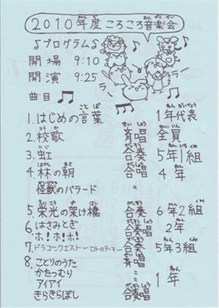 2010年度 ころころ音楽会
♪プログラム♪
開場 9:10
開演 9:25
曲目
1.はじめの言葉 1年代表
2.校歌 斉唱 全員
3.虹 合奏 5年1組
4.林の朝 合唱 4年
怪獣のバラード
5.栄光の架け橋 合奏 6年2組
6.はさみとぎ 2年
ホ!ホ!ホ!
7.ドラゴンクエスト 合奏 5年3組
8.ことりのうた 1年
かたつむり
アイアイ
きらきらぼし